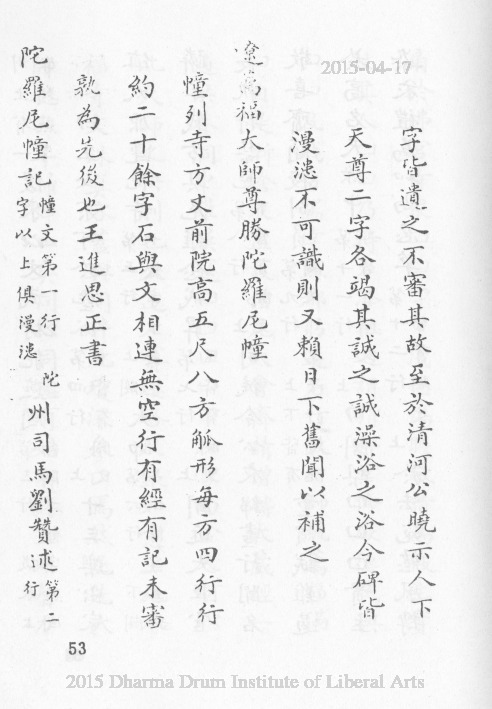 2015-04-17
字皆遺之不審其故至於清河公曉示人下
天尊二字各竭其誠之誠澡浴之浴今碑皆
漫漶不可識則又賴日下舊聞以補之
遼萬福大師尊勝陀羅尼幢
幢列寺方丈前院高五尺八方觚形每方四行行
約二十餘字石與文相連無空行有經有記未審
孰為先後也王進思正書
陀羅尼幢記 幢文第一行陀字以上俱漫漶 州司馬劉贊述 第二行
53
2015 Dharma Drum Institute of Liberal Arts